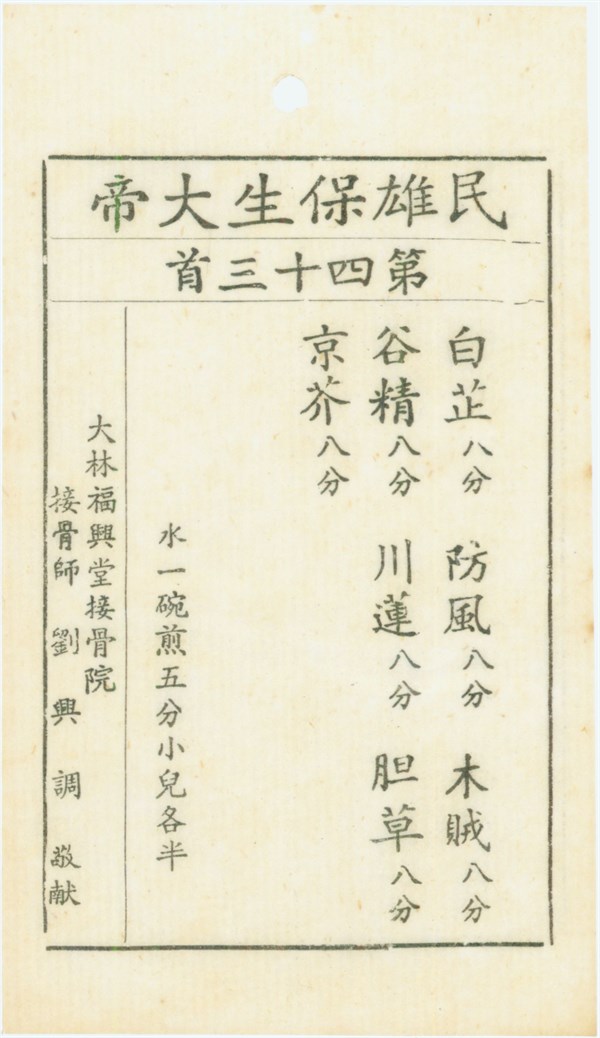 民雄保生大帝
第四十三首
白芷八分 防風八分 木賊八分
谷精八分 川蓮八分 胆草八分
京芥八分
水一碗煎五分小兒各半
大林福興堂接骨院
接骨師 劉興調 敬献